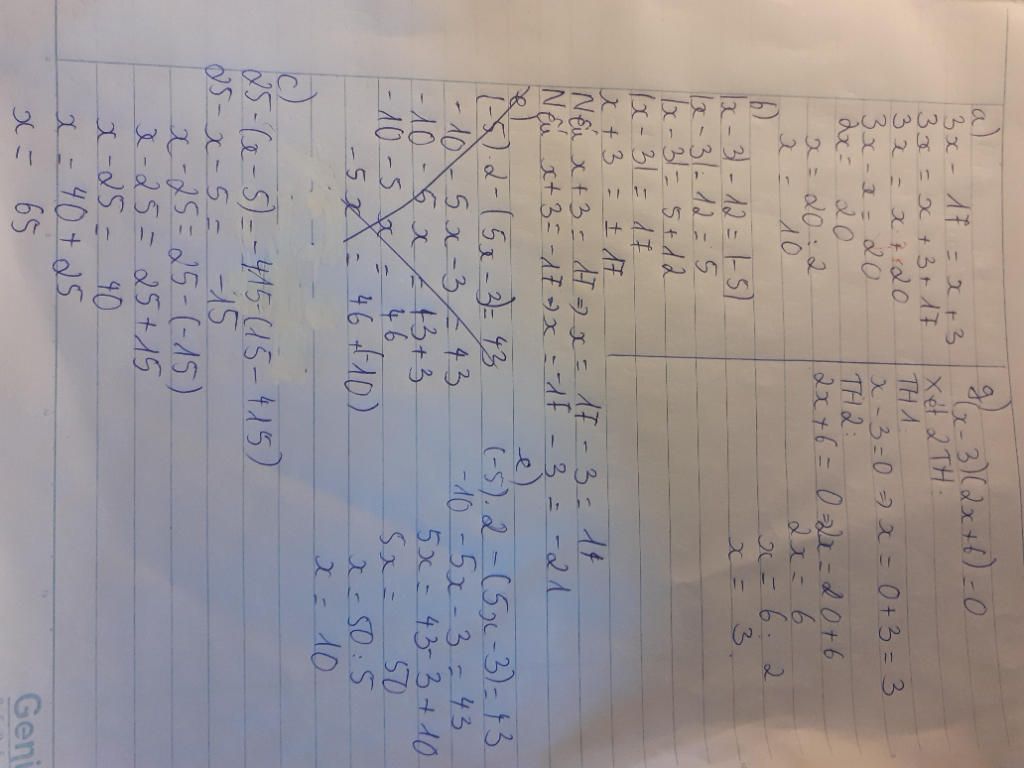 a)
3x - 17 = x + 3
3x = x + 3 + 17
3x = x + 20
3x - x = 20
2x = 20
x = 20 : 2
x = 10
b)
|x - 3| - 12 = |-5|
|x - 3| - 12 = 5
|x - 3| = 5 + 12
|x - 3| = 17
x + 3 = ± 17
Nếu x + 3 = 17 => x = 17 - 3 = 14
Nếu x + 3 = -17 => x = -17 - 3 = -21
e)
(-5) . 2 - (5x - 3) = 43
-10 - 5x - 3 = 43
-10 - 5x = 43 + 3
-10 - 5x = 46
-5x = 46 + (-10)
c)
25 - (x - 5) = -415 - (15 - 415)
25 - x - 5 = -15
x - 25 = 25 - (-15)
x - 25 = 25 + 15
x - 25 = 40
x = 40 + 25
x = 65
g)
(x - 3)(2x + 6) = 0
Xét 2TH.
TH1:
x - 3 = 0 => x = 0 + 3 = 3
TH2:
2x + 6 = 0 => 2x = 20 + 6
2x = 6
x = 6 : 2
x = 3.
e)
(-5) . 2 - (5x - 3) = 43
-10 - 5x - 3 = 43
5x = 43 - 3 + 10
5x = 50
x = 50 : 5
x = 10
Geni